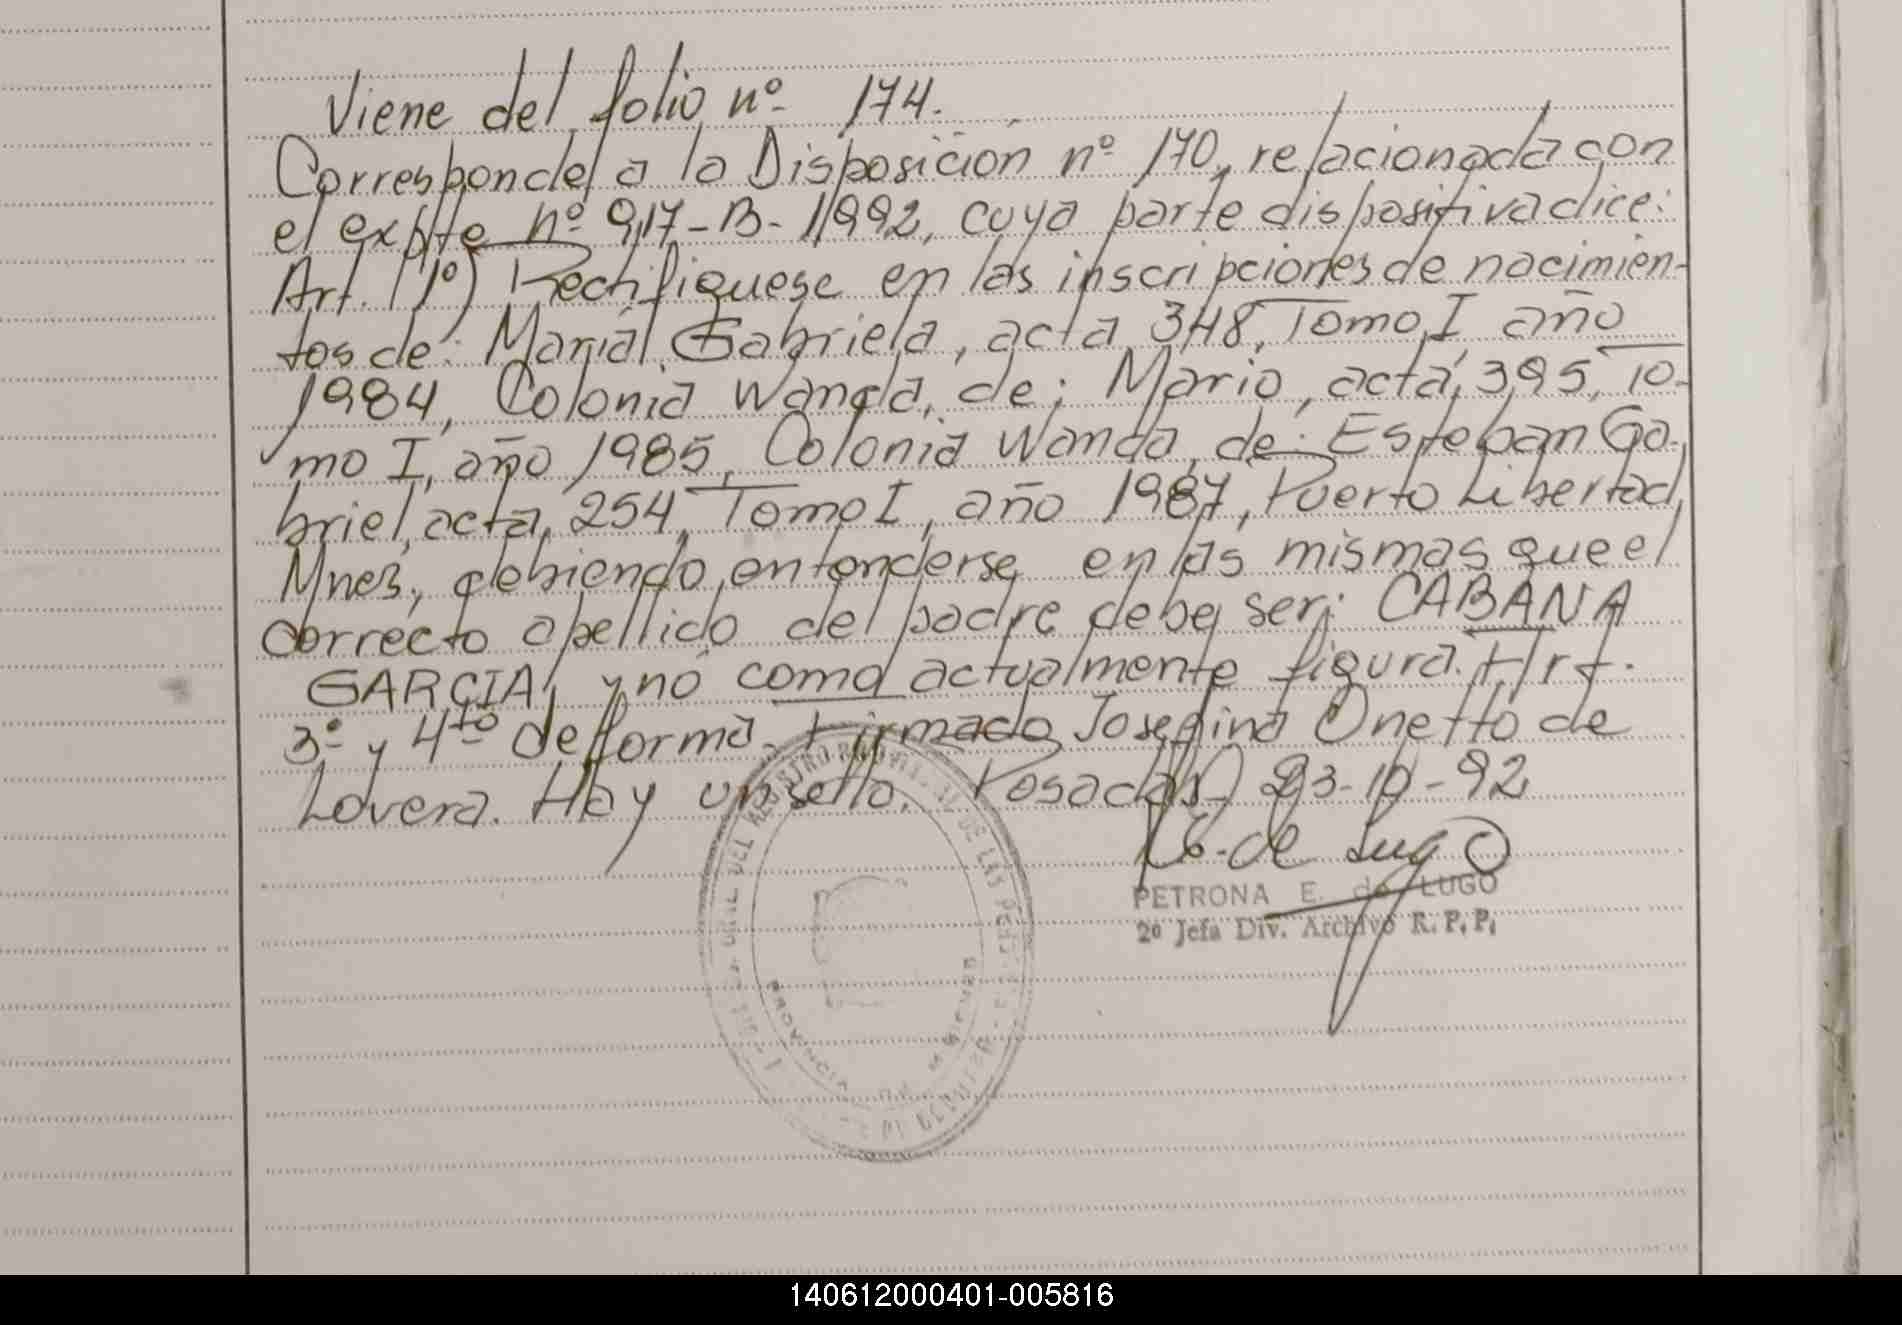 Viene del folio nº 174.
Corresponde a la Disposición nº 170, relacionada con
el expte nº 917-B-1992, cuya parte dispositiva dice:
Art. 1º) Rectifiquese en las inscripciones de nacimien-
tos de: María Gabriela, acta 348, Tomo I año
1984, Colonia Wanda, de: Mario, acta 395, To-
mo I, año 1985, Colonia Wanda, de: Esteban Ga-
briel, acta 254, Tomo I, año 1987, Puerto Libertad,
Mnes, debiendo entenderse en las mismas que el
correcto apellido del padre debe ser: CABANA
GARCIA, y no como actualmente figura. Art.
3º y 4to de forma. Firmado Josefina Onetto de
Lovera. Hay un sello. Posadas, 23-10-92
E. de Lugo
PETRONA E. de LUGO
2º Jefa Div. Archivo R. P. P.
DEL REGISTRO PROVINCIAL DE LAS PERSONAS
PROVINCIA DE MISIONES
140612000401-005816